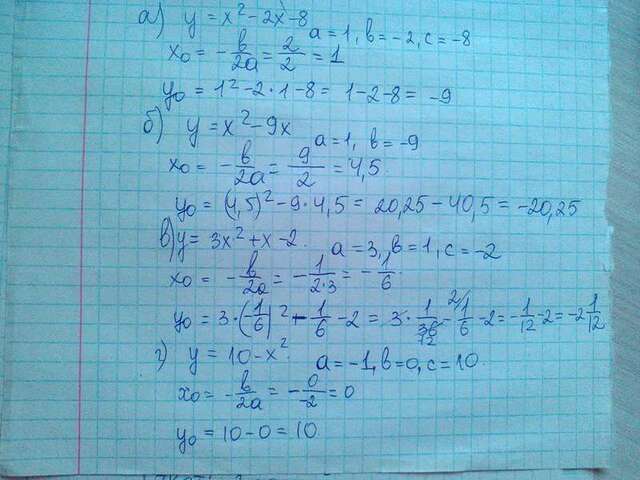 а) y = x² - 2x - 8 a = 1, в = -2, c = -8
x₀ = -в/2a = 2/2 = 1
y₀ = 1² - 2·1 - 8 = 1 - 2 - 8 = -9
б) y = x² - 9x a = 1, в = -9
x₀ = -в/2a = 9/2 = 4,5
y₀ = (4,5)² - 9·4,5 = 20,25 - 40,5 = -20,25
в) y = 3x² + x - 2. a = 3, в = 1, c = -2
x₀ = -в/2a = -1/2·3 = -1/6.
y₀ = 3·(-1/6)² - 1/6 - 2 = 3·1/36 12 - 2/ 1/6 - 2 = -1/12 - 2 = -2 1/12
г) y = 10 - x² a = -1, в = 0, c = 10.
x₀ = -в/2a = -0/-2 = 0
y₀ = 10 - 0 = 10